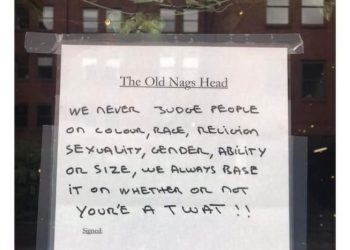 The Old Nags Head
WE NEVER JUDGE PEOPLE
ON COLOUR, RACE, RELIGION
SEXUALITY, GENDER, ABILITY
OR SIZE, WE ALWAYS BASE
IT ON WHETHER OR NOT
YOUR'E A TWAT !!
Signed: